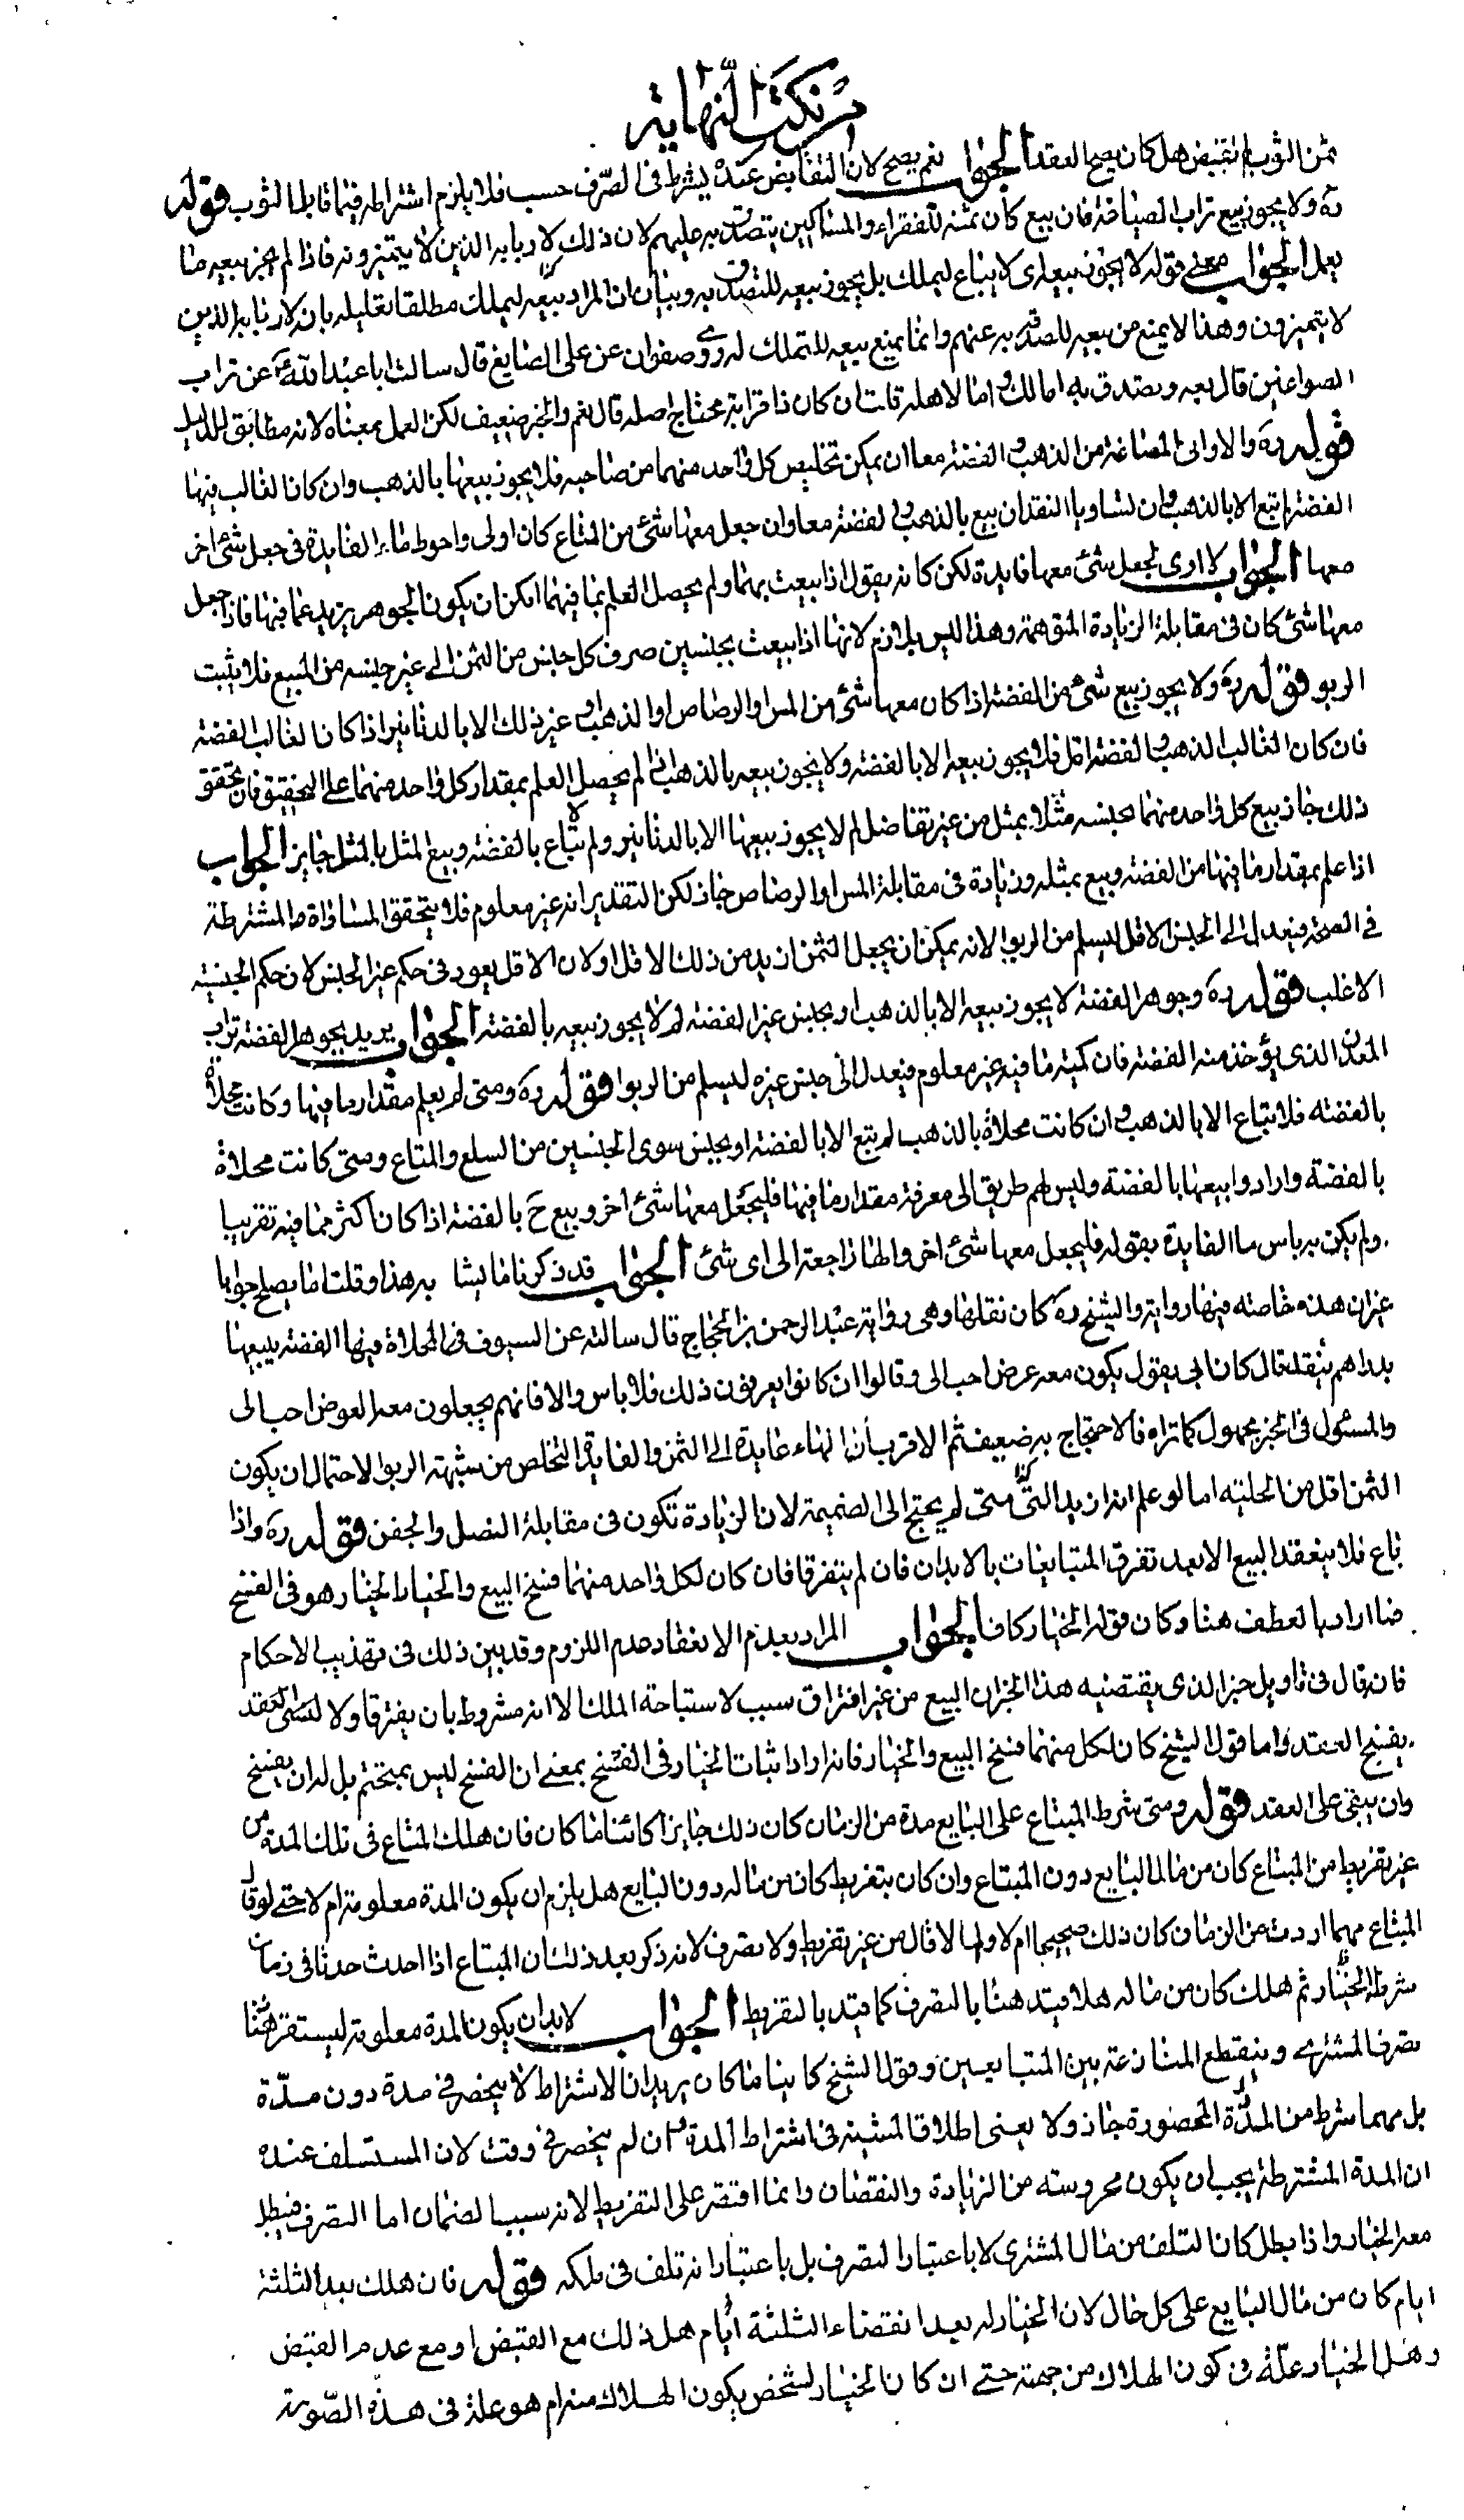 من نكت النهاية
ثمن الثوب لم تقبض هل كان يصح العقد الجواب نعم يصح لان التقابض عنده يشترط فى الصرف حسب فلا يلزم اشتراطه فيما قابل الثوب قوله
ره ولا يجوز بيع تراب الصياغة فان بيع كان ثمنه للفقراء والمساكين يتصدق به عليهم لان ذلك لاربابه الذين لا يتميزونه فاذا لم يجز بيعه ما
يعمل الجواب معنى قوله لا يجوز بيعه اى لا يباع ليملك بل يجوز بيعه للتصدق به وبيان ان المراد بيعه ليملك مطلقا تعليله بان لاربابه الذين
لا يتميزون وهذا لا يمنع من بيعه للصدقة به عنهم وانما يمنع بيعه للتملك له روى صفوان عن على الصايغ قال سالت ابا عبد الله ع عن تراب
الصواغين قال بعه وتصدق به اما لك واما لاهله قلت ان كان ذا قرابة محتاج اصله قال نعم والخبر ضعيف لكن العمل بمعناه لانه مطابق للدليل
قوله ره والاوانى المصاغة من الذهب والفضة معا ان يمكن تخليص كل واحد منهما من صاحبه فلا يجوز بيعها بالذهب وان كان الغالب فيها
الفضة لم تبع الا بالذهب وان تساويا النقدان بيع بالذهب والفضة معا وان جعل معها شئ من المتاع كان اولى واحوط ما الفايدة فى جعل شئ اخر
معها الجواب لا ارى لجعل شئ معها فايدة لكن كانه يقول اذا بيعت بهما ولم يحصل العلم بما فيهما امكن ان يكون الجوهر يزيد عما فيها فاذا جعل
معها شئ كان فى مقابلة الزيادة المتوهمة وهذا ليس بلازم لانها اذا بيعت بجنسين صرف كل جنس من الثمن الى غير جنسه من المبيع فلا يثبت
الربو قوله ره ولا يجوز بيع شئ من الفضة اذا كان معها شئ من المس او الرصاص او الذهب او غير ذلك الا بالدنانير اذا كان الغالب الفضة
فان كان الغالب الذهب والفضة اقل فلا يجوز بيعه الا بالفضة ولا يجوز بيعه بالذهب اذا لم يحصل العلم بمقدار كل واحد منهما على التحقيق فان تحقق
ذلك جاز بيع كل واحد منهما بجنسه مثلا بمثل من غير تفاضل لم لا يجوز بيعها الا بالدنانير ولم لا تباع بالفضة وبيع المثل بالمثل جايز الجواب
اذا علم بمقدار ما فيها من الفضة وبيع بمثله وزيادة فى مقابلة المس او الرصاص جاز لكن التقدير انه غير معلوم فلا يتحقق المساواة المشترطة
فى الصحة فيعدل الى الجنس الاقل ليسلم من الربو لانه يمكن ان يجعل الثمن ازيد من ذلك الاقل او لان الاقل يعود فى حكم غير الجنس لان حكم الجنسية
الاغلب قوله ره وجوهر الفضة لا يجوز بيعه الا بالذهب او بجنس غير الفضة لم لا يجوز بيعه بالفضة الجواب يريد بجوهر الفضة تراب
المعدن الذى يؤخذ منه الفضة فان كمية ما فيه غير معلوم فيعدل الى جنس غيره ليسلم من الربوا قوله ره ومتى لم يعلم مقدار ما فيها وكانت محلاة
بالفضة فلا تباع الا بالذهب وان كانت محلاة بالذهب لم تبع الا بالفضة او بجنس سوى الجنسين من السلع والمتاع ومتى كانت محلاة
بالفضة وارادوا بيعها بالفضة وليس لهم طريق الى معرفة مقدار ما فيها فليجعل معها شئ اخر وبيع ح بالفضة اذا كان اكثر مما فيه تقريبا
ولم يكن به باس ما الفايدة بقوله فليجعل معها شئ اخر والها راجعة الى اى شئ الجواب قد ذكرنا ما يشابه هذا وقلت ما يصلح جوابا
غير ان هذه خاصة فيها رواية والشيخ ره كان نقلها وهى رواية عبد الرحمن بن الحجاج قال سالته عن السيوف المحلاة فيها الفضة يبيعها
بدراهم بنقد قال كان ابى يقول يكون معه عرض احب الى وقالوا ان كانوا يعرفون ذلك فلا باس والا فانهم يجعلون معه العوض احب الى
والمسئول فى الخبر مجهول كما تراه فالاحتجاج به ضعيف ثم الاقرب ان الهاء عايدة الى الثمن والفايدة التخلص من شبهة الربوا لاحتمال ان يكون
الثمن اقل من الحلية اما لو علم انه ازيد لم يحتج الى الضميمة لان الزيادة تكون فى مقابلة النصل والجفن قوله ره واذا
باع فلا ينعقد البيع الا بعد تفرق المتبايعان بالابدان فان لم يتفرقا فان كان لكل واحد منهما فسخ البيع والخيار الخيار هو فى الفسخ
ما اراد بالعطف هنا وكان قوله الخيار كافيا الجواب المراد بعدم الانعقاد عدم اللزوم وقد بين ذلك فى تهذيب الاحكام
فان قال فى تاويل خبر الذى يقتضيه هذا الخبر ان البيع من غير افتراق سبب لاستباحة الملك الا انه مشروط بان يفترقا ولا العقد
بفسخ العقد واما قول الشيخ كان لكل منهما فسخ البيع والخيار فانه اراد اثبات الخيار فى الفسخ بمعنى ان الفسخ ليس بمتحتم بل له ان يفسخ
وان يبقى على العقد قوله ومتى شرط المبتاع على البايع مدة من الزمان كان ذلك جايزا كائنا ما كان فان هلك المتاع فى تلك المدة من
غير تفريط من المبتاع كان من مال البايع دون المبتاع وان كان بتفريط كان من ماله دون البايع هل يلزم ان يكون المدة معلومة ام لا حتى لو قال
المبتاع مهما اردت من الزمان كان ذلك صحيحا ام لا ولم لا قال من غير تفريط ولا تصرف لانه ذكر بعد ذلك ان المبتاع اذا احدث حدثا فى زمان
شرط الخيار ثم هلك كان من ماله هلا قيد هنا بالتصرف كما قيد بالتفريط الجواب لا بد ان يكون المدة معلومة ليستقر هنا
تصرف المشترى وينقطع المنازعة بين المتبايعين وقول الشيخ كاينا ما كان يريد ان الاشتراط لا ينحصر فى مدة دون مدة
بل مهما شرط من المدة المحصورة جاز ولا يعنى اطلاق المشية فى اشتراط المدة وان لم ينحصر فى وقت لان المستسلف عنده
ان المدة المشترطة يجب ان يكون محروسة من الزيادة والنقصان وانما اقتصر على التفريط لانه سبب الضمان اما التصرف فيبطل
معه الخيار واذا بطل كان التلف من مال المشترى لا باعتبار التصرف بل باعتبار انه تلف فى ملكه قوله فان هلك بعد الثلثة
ايام كان من مال البايع على كل حال لان الخيار له بعد انقضاء الثلثة ايام هل ذلك مع القبض او مع عدم القبض
وهل الخيار علة فى كون الهلاك من جهته حتى ان كان الخيار لشخص يكون الهلاك منه ام هو علة فى هذه الصورة